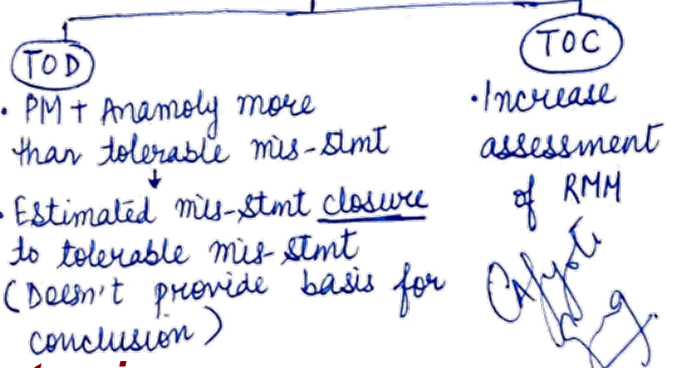 TOD
• PM + Anamoly more
than tolerable mis-stmt
↓
• Estimated mis-stmt closure
to tolerable mis-stmt
(Doesn't provide basis for
conclusion)
TOC
• Increase
assessment
of RMM
CA Jyoti